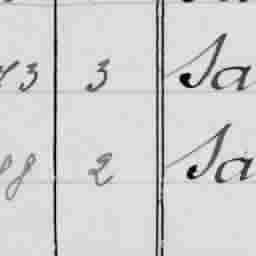 73 3 Sa
88 2 Sa